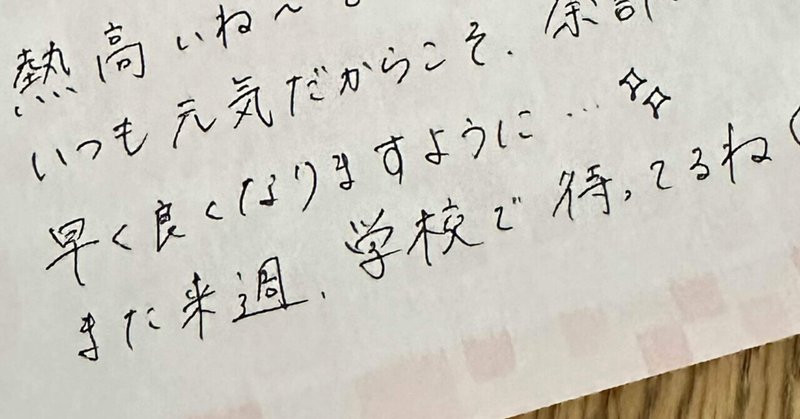 熱高いね〜
いつも元気だからこそ、余計
早く良くなりますように…
また来週、学校で待ってるね(